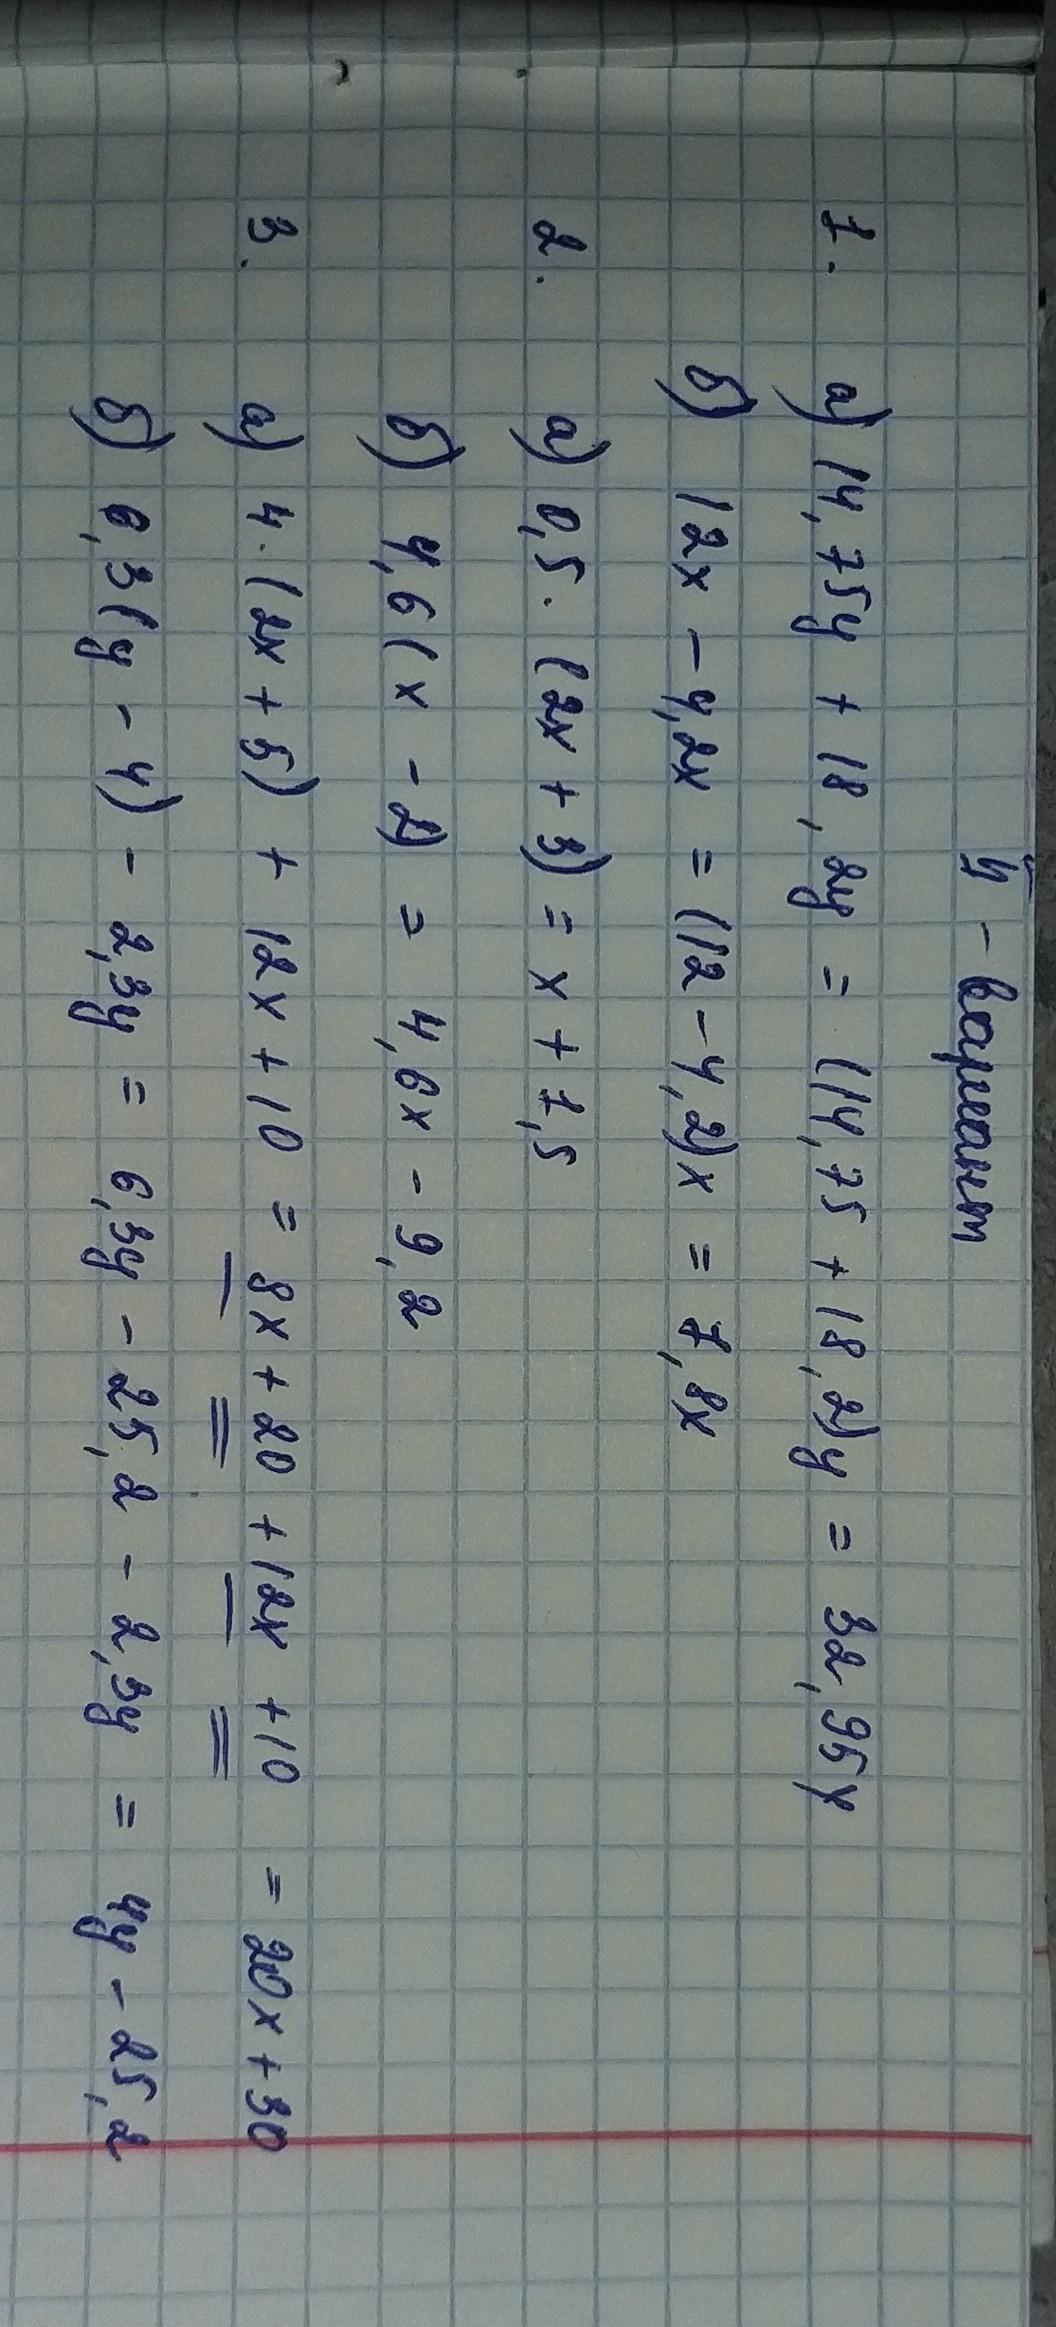 4 - вариант
1. а) 14,75y + 18,2y = (14,75 + 18,2)y = 32,95y
б) 12x - 4,2x = (12 - 4,2)x = 7,8x
2. а) 0,5 · (2x + 3) = x + 1,5
б) 4,6(x - 2) = 4,6x - 9,2
3. а) 4 · (2x + 5) + 12x + 10 = 8x + 20 + 12x + 10 = 20x + 30
б) 6,3(y - 4) - 2,3y = 6,3y - 25,2 - 2,3y = 4y - 25,2